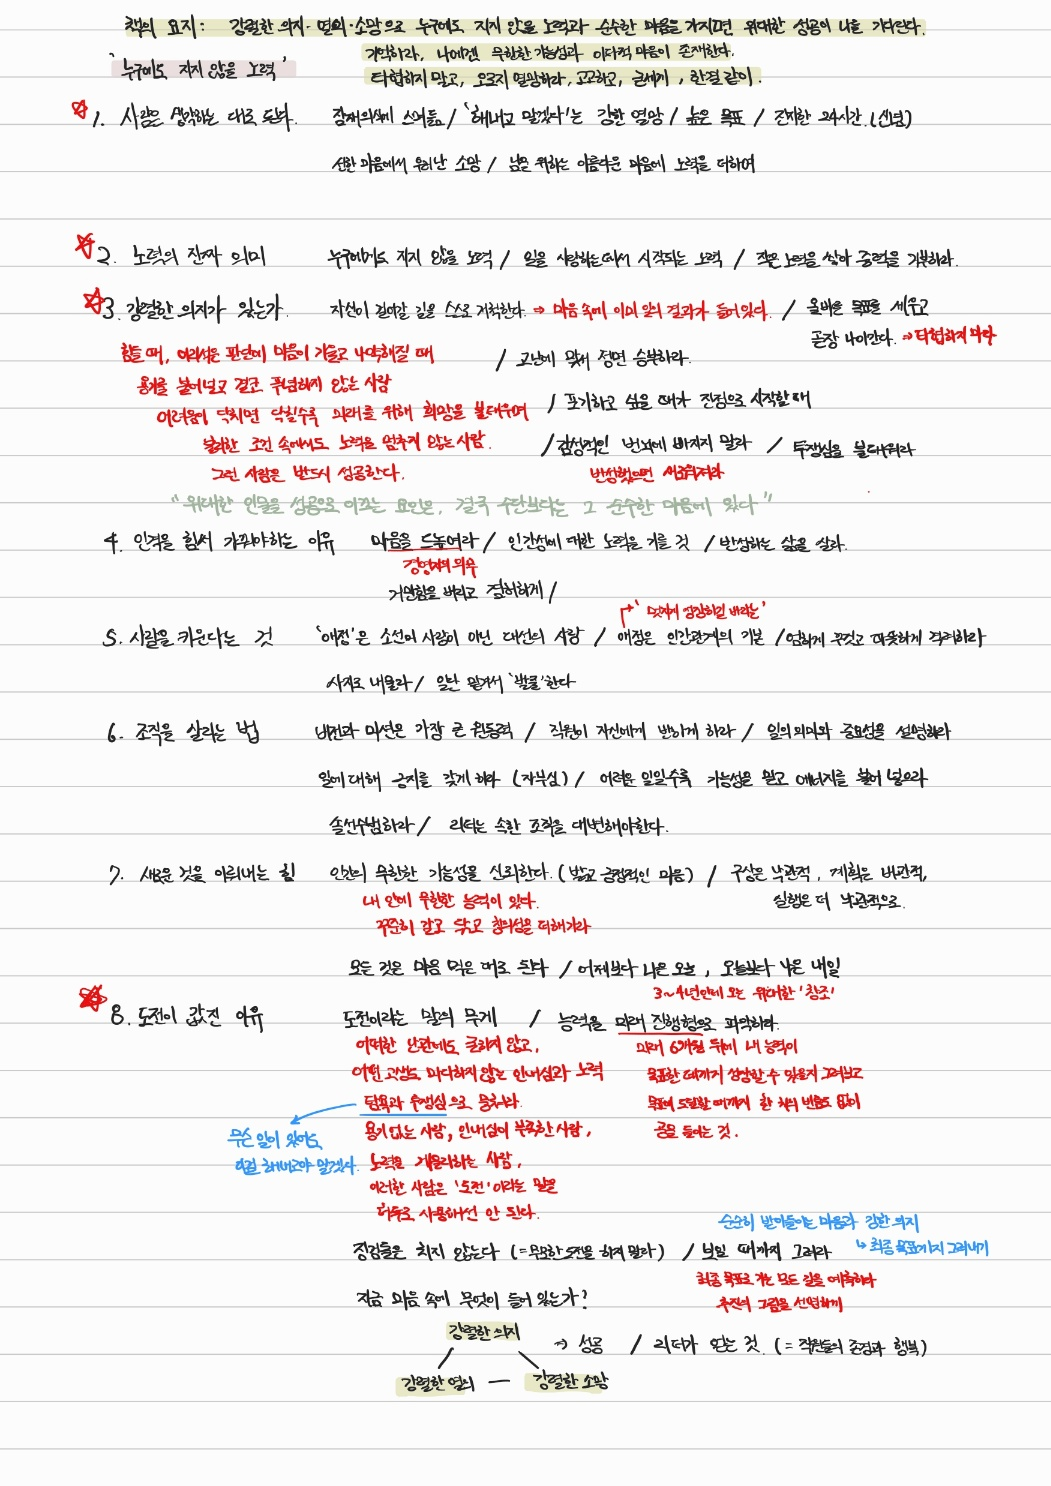 책의 요지 : 강렬한 의지·열의·소망으로 누구에도 지지 않을 노력과 순수한 마음을 가지면 위대한 성공이 나를 기다린다.
기억하라, 나에겐 무한한 가능성과 이타적 마음이 존재한다.
'누구에도 지지 않을 노력'
타협하지 말고, 오로지 열망하라, 고고하고, 굳세게, 한결같이.
1. 사람은 생각하는 대로 된다. 잠재의식에 스며듦 / '해내고 말겠다'는 강한 열망 / 높은 목표 / 진지한 24시간. (신념)
선한 마음에서 우러난 소망 / 남을 위하는 아름다운 마음에 노력을 더하여
2. 노력의 진짜 의미 누구에게도 지지 않을 노력 / 일을 사랑하는데서 시작되는 노력 / 작은 노력을 쌓아 중력을 거부하라.
3. 강렬한 의지가 있는가. 자신이 걸어갈 길을 스스로 개척한다. ⇒ 마음 속에 이미 일의 결과가 들어있다. / 올바른 목표를 세우고
곧장 나아간다. ⇒ 타협하지 마라
힘들 때, 어리석은 판단에 마음이 기울고 나약해질 때 / 고난에 맞서 정면 승부하라.
용기를 불어넣고 결코 푸념하지 않는 사람
어려움이 닥치면 닥칠수록 미래를 위해 희망을 불태우며 / 포기하고 싶을 때가 진정으로 시작할 때
불리한 조건 속에서도 노력을 멈추지 않는 사람. / 감성적인 번뇌에 빠지지 말라 / 투쟁심을 불태워라
그런 사람은 반드시 성공한다. 반성했으면 새로워져라
"위대한 인물을 성공으로 이끄는 요인은, 결국 수단보다는 그 순수한 마음에 있다"
4. 인격을 힘써 가꿔야하는 이유 마음을 드높여라 / 인간성에 대한 노력을 기울 것 / 반성하는 삶을 살라.
경영자의 의무
거만함을 버리고 겸허하게 /
'멋지게 성장하길 바라는'
5. 사람을 키운다는 것 '애정'은 소선의 사랑이 아닌 대선의 사랑 / 애정은 인간관계의 기본 / 엄하게 꾸짖고 따뜻하게 격려하라
사지로 내몰라 / 일단 맡겨서 '발굴'한다
6. 조직을 살리는 법 비전과 미션은 가장 큰 원동력 / 직원이 자신에게 반하게 하라 / 일의 의미와 중요성을 설명하라
일에 대해 긍지를 갖게 하라 (자부심) / 어려운 일일수록 가능성을 믿고 에너지를 불어 넣으라
솔선수범하라 / 리더는 속한 조직을 대변해야한다.
7. 새로운 것을 이뤄내는 힘 인간의 무한한 가능성을 신뢰한다. (밝고 긍정적인 마음) / 구상은 낙관적, 계획은 비관적,
내 안에 무한한 능력이 있다. 실행은 더 낙관적으로.
꾸준히 갈고 닦고 창의성을 더해가라
모든 것은 마음 먹은 대로 된다 / 어제보다 나은 오늘, 오늘보다 나은 내일
3~4년안에 오는 위대한 '창조'
8. 도전이 값진 이유 도전이라는 말의 무게 / 능력을 미래 진행형으로 파악하라.
어떠한 난관에도 굴하지 않고, 미래 6개월 뒤에 내 능력이
어떤 고생도 마다하지 않는 인내심과 노력 목표한 데까지 성장할 수 있을지 그려보고
담욕과 투쟁심으로 뭉쳐라. 목표에 도달할 때까지 한 치의 빈틈도 없이
무슨 일이 있어도 용기 없는 사람, 인내심이 부족한 사람, 공을 들이는 것.
이걸 해내고야 말겠다. 노력을 게을리하는 사람,
이러한 사람은 '도전'이라는 말을
함부로 사용해선 안 된다.
순순히 받아들이는 마음과 강한 의지
징검돌은 치지 않는다 (= 무모한 도전을 하지 말라) / 보일 때까지 그려라 ↳ 최종 목표까지 그려내기
최종 목표로 가는 모든 길을 예측하라
지금 마음 속에 무엇이 들어 있는가? 추진의 그림을 선명하게
강렬한 의지 → 성공 / 리더가 얻는 것. (= 직원들의 존경과 행복)
강렬한 열의 — 강렬한 소망